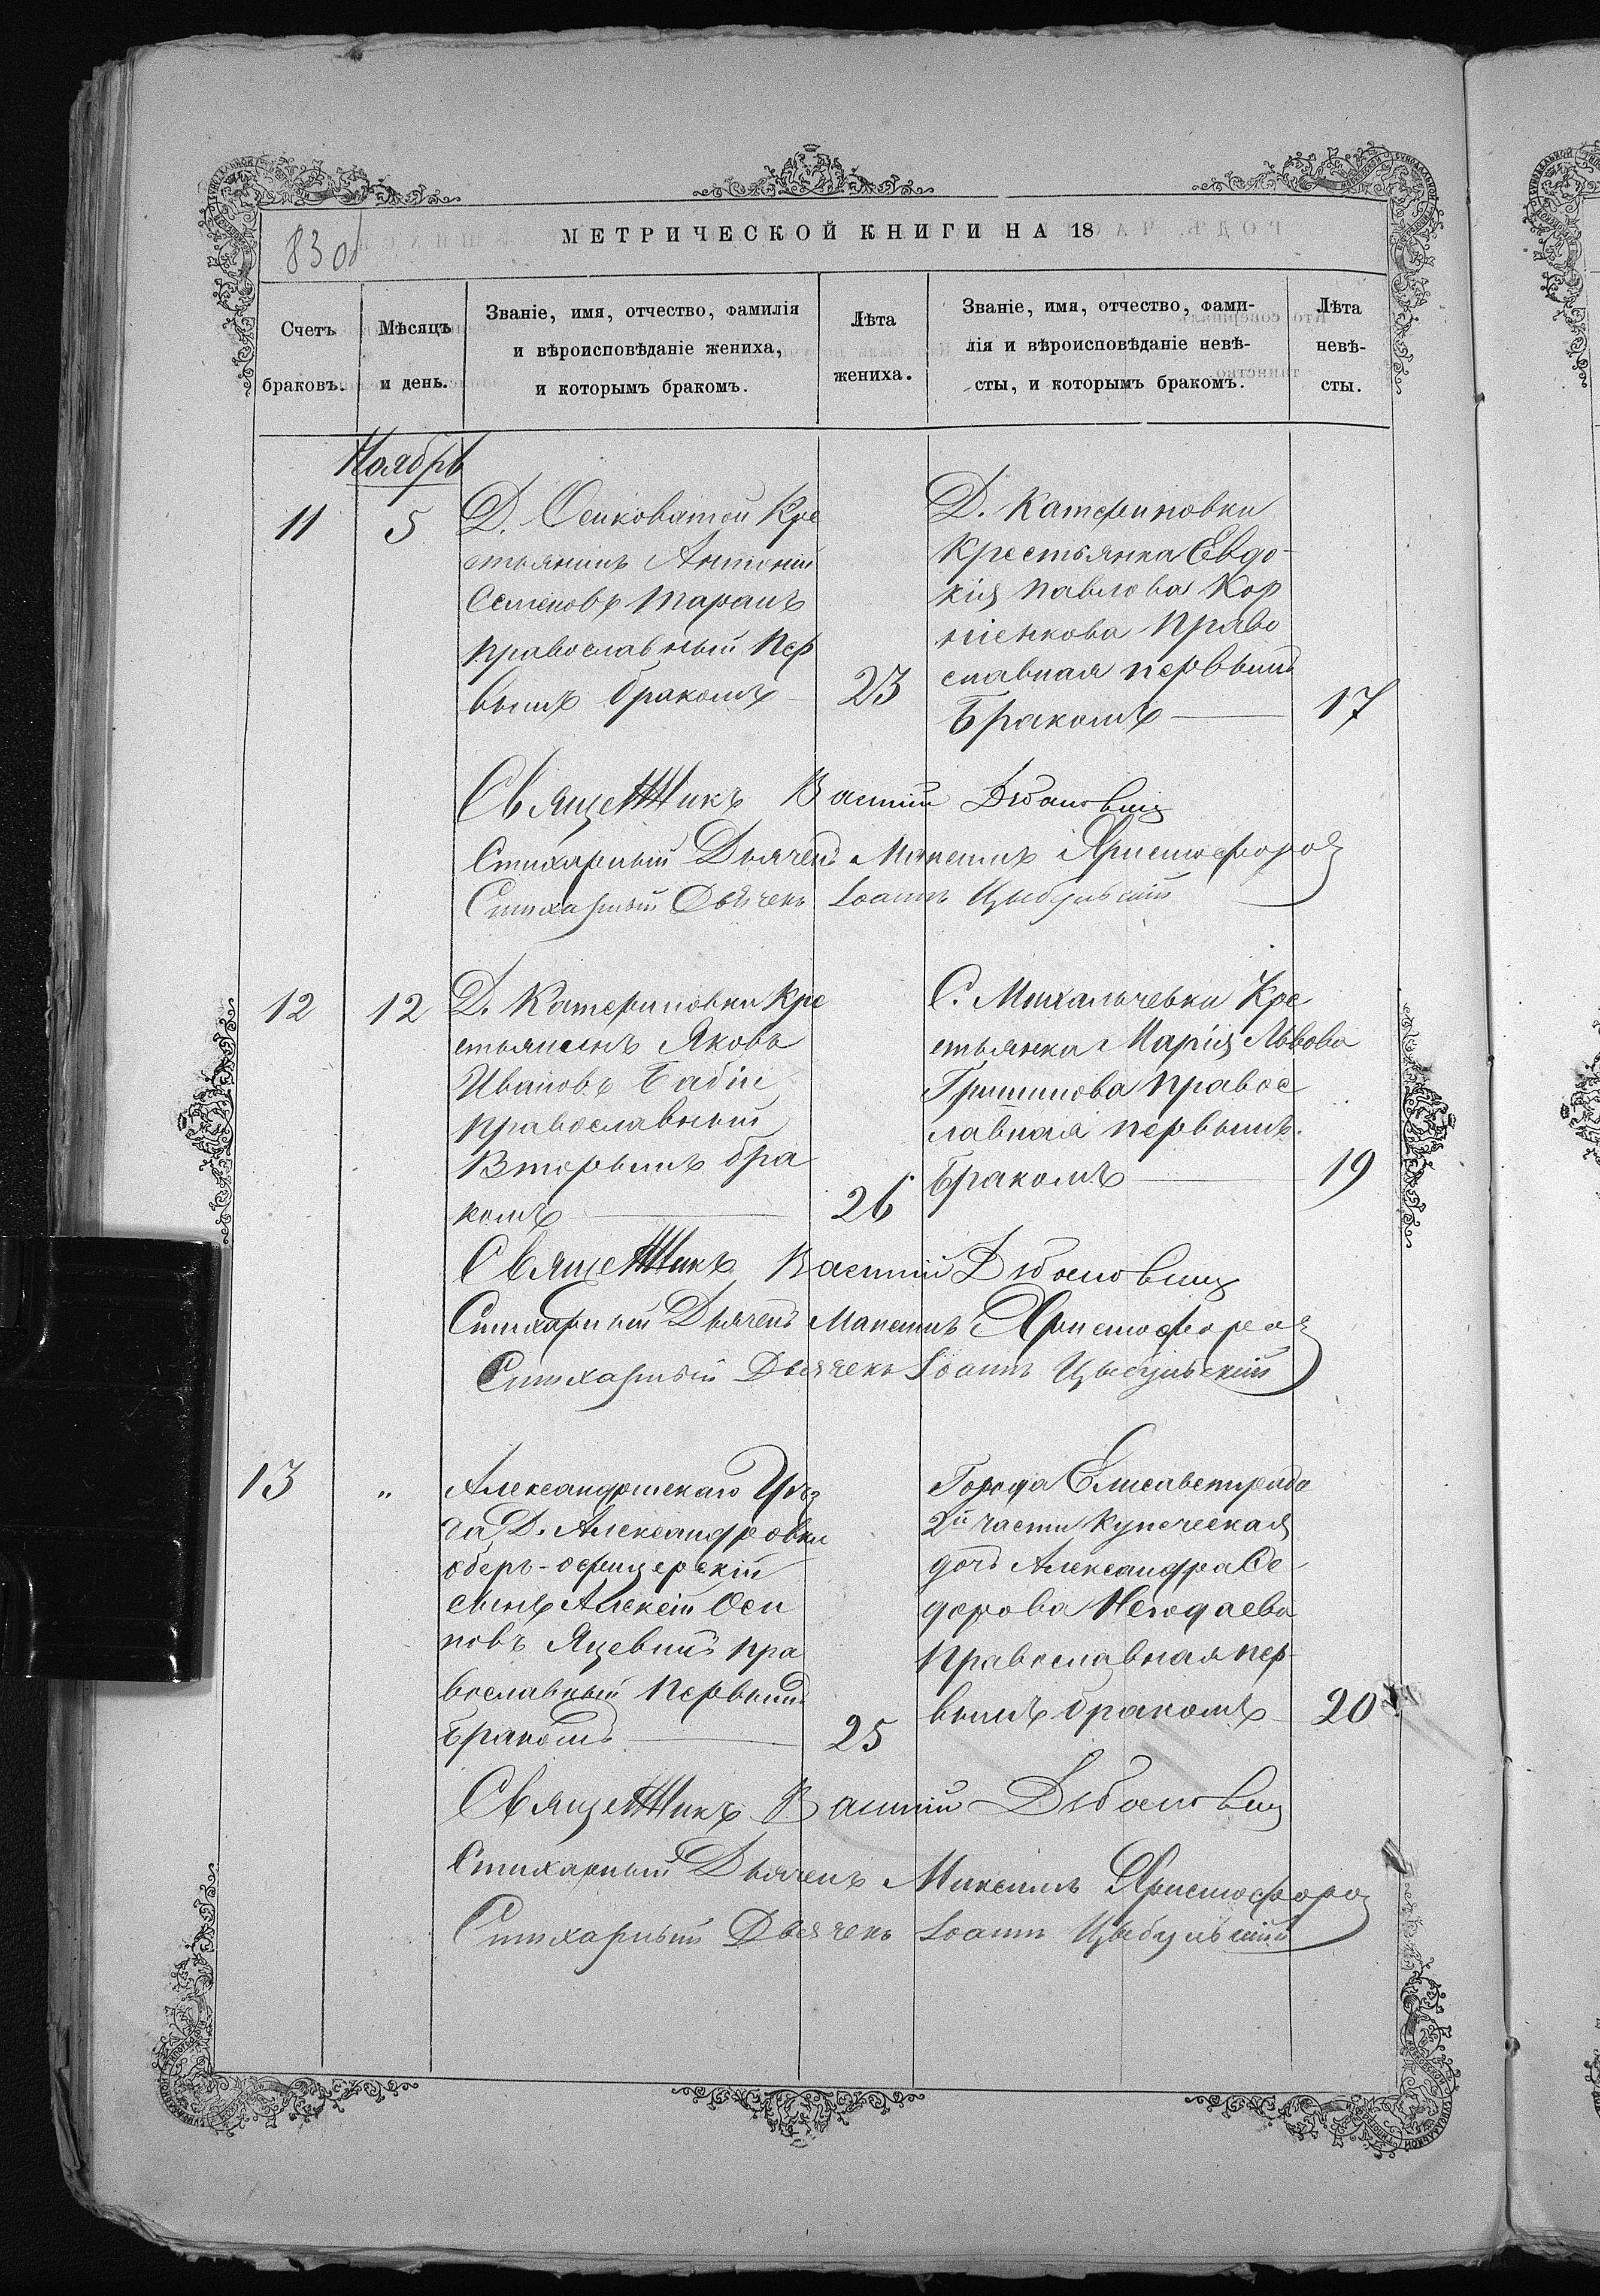 83 об
МЕТРИЧЕСКОЙ КНИГИ НА 18
Счетъ браковъ.
Мѣсяцъ и день.
Званіе, имя, отчество, фамилія
и вѣроисповѣданіе жениха,
и которымъ бракомъ.
Лѣта жениха.
Званіе, имя, отчество, фами-
лія и вѣроисповѣданіе невѣ-
сты, и которымъ бракомъ.
Лѣта невѣ-
сты.
Ноябрь
11
5
Д. Осиковатой Кре
стьянинъ Антоній
Семеновъ Таранъ
православный пер
вымъ бракомъ
23
Д. Катериновки
крестьянка Евдо-
кія Павлова Кор
ніенкова право
славная первымъ
бракомъ
17
Священникъ Василій
Стихарный Дьячекъ Максимъ Христофоров
Стихарный Дьячекъ Іоаннъ Цыбульскій
12
12
Д. Катериновки Кре
стьянинъ Яковъ
Ивановъ Бабій
православный
вторымъ бра
комъ
26
С. Михальчевки Кре
стьянка Марія Львова
Гришинова правос
лавная первымъ
бракомъ
19
Священникъ Василій
Стихарный Дьячекъ Максимъ Христофоров
Стихарный Дьячекъ Іоаннъ Цыбульскій
13
"
Александрійскаго Уѣз
да Д. Александровки
оберъ-офицерскій
сынъ Алексій Оси
повъ Яцевичъ пра
вославный первымъ
бракомъ
25
Города Елисаветграда
2й части купеческая
дочь Александра Ѳе-
дорова Негодаева
православная пер-
вымъ бракомъ
20
Священникъ Василій
Стихарный Дьячекъ Максимъ Христофоров
Стихарный Дьячекъ Іоаннъ Цыбульскій